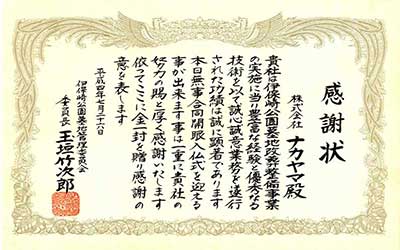 感謝状
株式会社
ナカヤマ殿
貴社は伊保崎公園墓地改葬整備事業
の実施に当り豊富な経験と優秀なる
技術を以て誠心誠意業務を遂行
された功績は誠に顕著であります
本日無事合同開眼入仏式を迎える
事が出来ます事は一重に貴社の
努力の賜と厚く感謝いたします
依ってここに金一封を贈り感謝の
意を表します
平成四年七月二十六日
伊保崎公園墓地管理委員会
委員長
玉垣竹次郎